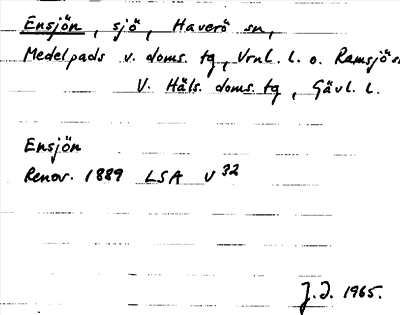 Ensjön, sjö, Haverö sn,
Medelpads v. doms. tg, Vrnl. l. o. Ramsjö sn
V. Häls. doms. tg, Gävl. l.
Ensjön
Renov. 1889 LSA V 32
J.I. 1965.